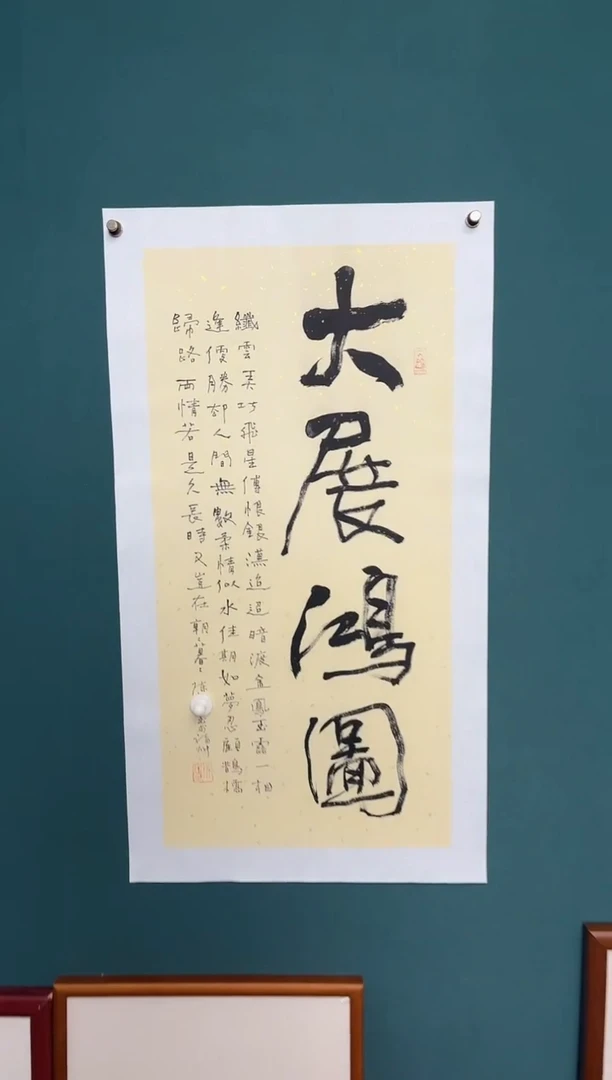 大展鴻圖
纖雲弄巧飛星傳恨銀漢迢迢暗渡金鳳玉露一相
逢便勝却人間無數柔情似水佳期如夢忍顧鵲橋
歸路兩情若是久長時又豈在朝〻暮〻